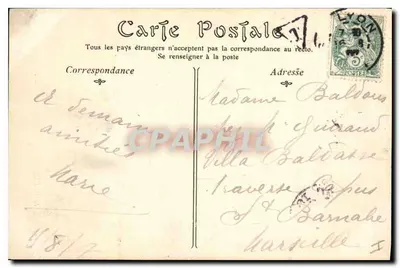 Carte Postale
Tous les pays étrangers n'acceptent pas la correspondance au recto.
Se renseigner à la poste
Correspondance
Adresse
LYON
T
5
A demain
amitiés
Marie
8/7
Madame Baldous
chez M. Guiraud
Villa
Traverse
St Barnabé
Marseille
CPARAMA.COM